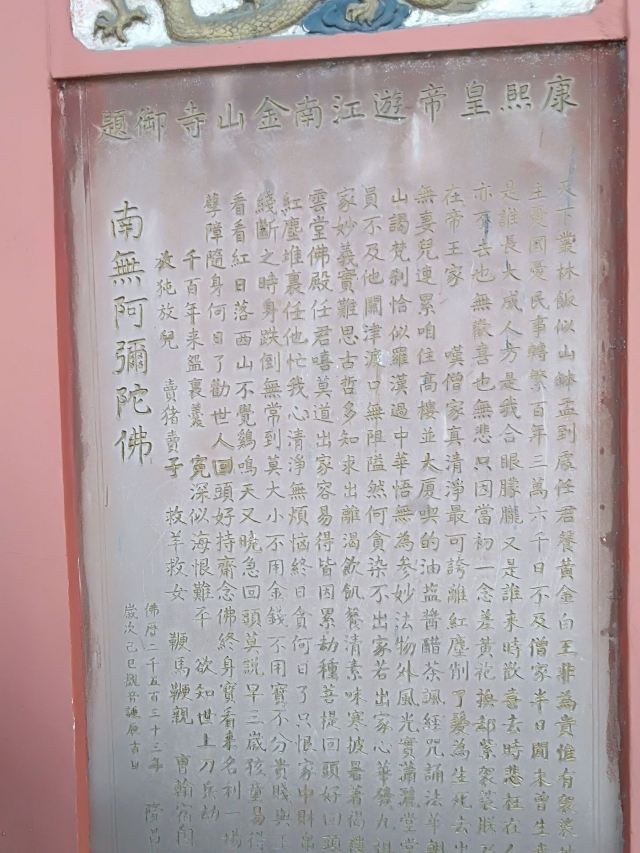 康熙皇帝遊江南金山寺御題
天下叢林飯似山鉢盂到處任君餐黃金白玉非為貴惟有袈裟
主憂國憂民事轉繁百年三萬六千日不及僧家半日閒未曾生
是誰長大成人方是我合眼朦朧又是誰來時歡喜去時悲枉在人
亦不去也無歡喜也無悲只因當初一念差黃袍換却紫袈裟朕
在帝王家 嘆僧家真清淨最可誇離紅塵削了髮為生死去出
無妻兒連累咱住高樓並大厦喫的油盐醬醋茶諷經咒誦法華朝
山謁梵剎恰似羅漢過中華悟無為參妙法物外風光實瀟灑堂堂
員不及他關津渡口無阻隘然何貪染不出家若出家心華發九祖
家妙義實難思古哲多知求出離渴飲飢餐清素味寒披暑著
雲堂佛殿任君嘻莫道出家容易得皆因累劫種菩提回頭好回頭
紅塵堆裏任他忙我心清淨無煩惱終日貪何日了只恨家中財帛
綫斷之時身跌倒無常到莫大小不用金錢不用寶不分貴賤與
看看紅日落西山不覺鷄鳴天又曉急回頭莫說早三歲孩童易得
孽障隨身何日了勸世人回頭好持齋念佛終身寶看來名利一場
千百年來盌裏羹 冤深似海恨難平 欲知世上刀兵劫
放兒 賣猪賣子 救羊救女 鞭馬鞭親 曹翰宿因
南無阿彌陀佛
佛曆二千五百三十三年 隆昌
歲次己巳觀音誕辰吉日